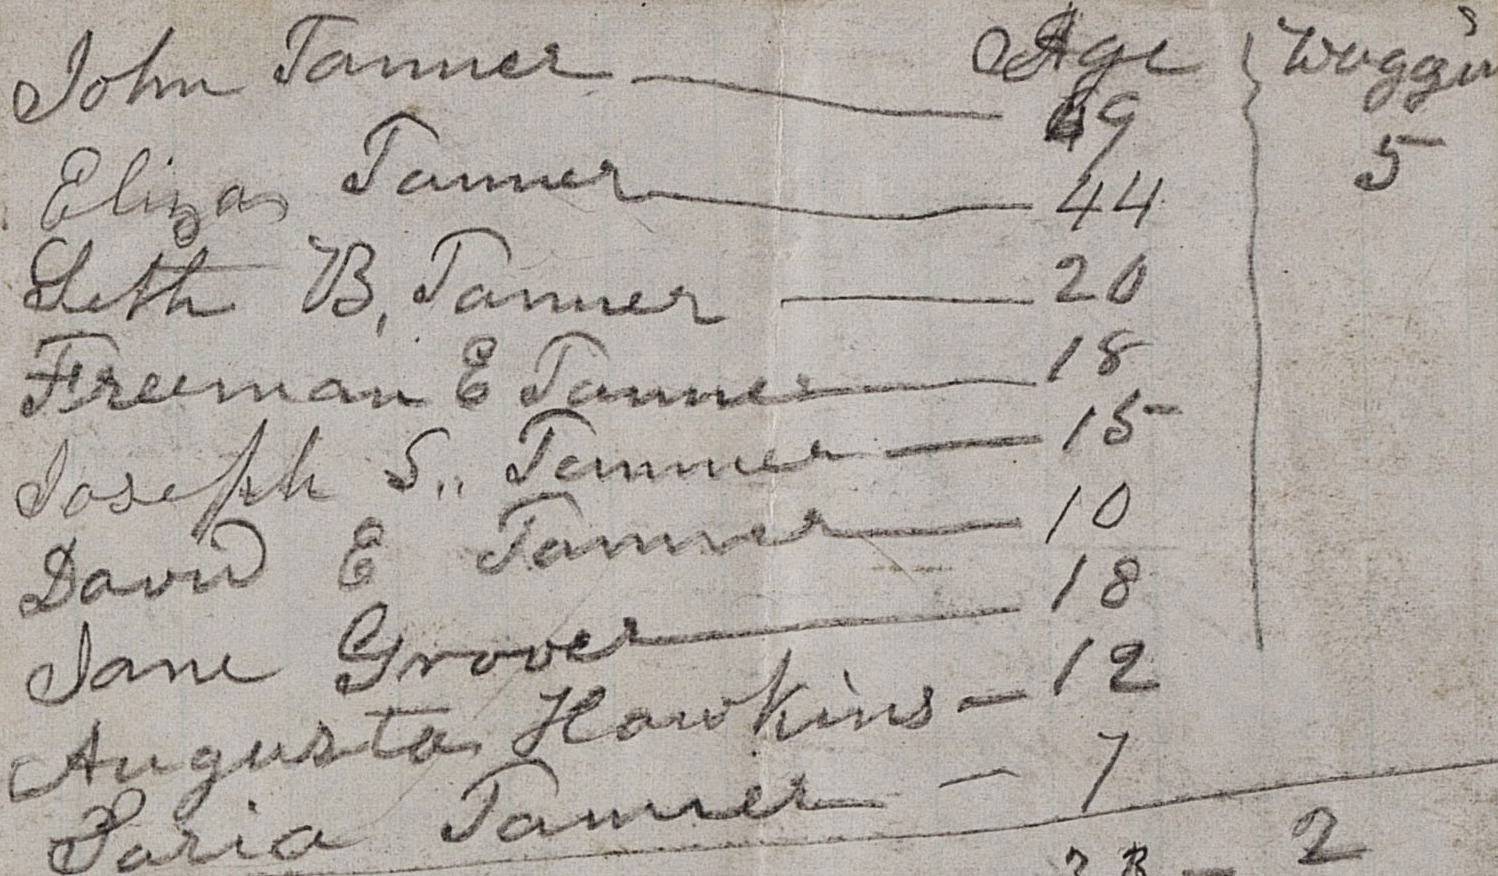 John Tanner Age Waggin
69 5
Eliza Tanner 44
Seth B, Tanner 20
Freeman E Tanner 18
Joseph S,, Tanner 15
David E Tanner 10
Jane Grover 18
Augusta Hawkins 12
Saria Tanner 7
2